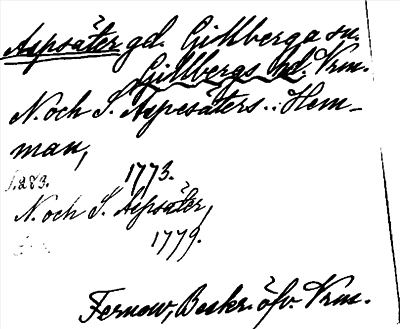 Aspsäter gd. Gillberga sn.
Gillbergs hd. Vrm.
N. och S. Aspesäters.: Hem-
man,
1773.
s. 283.
N. och S. Aspsäter,
1779.
Fernow, Beskr. öfv. Vrm.